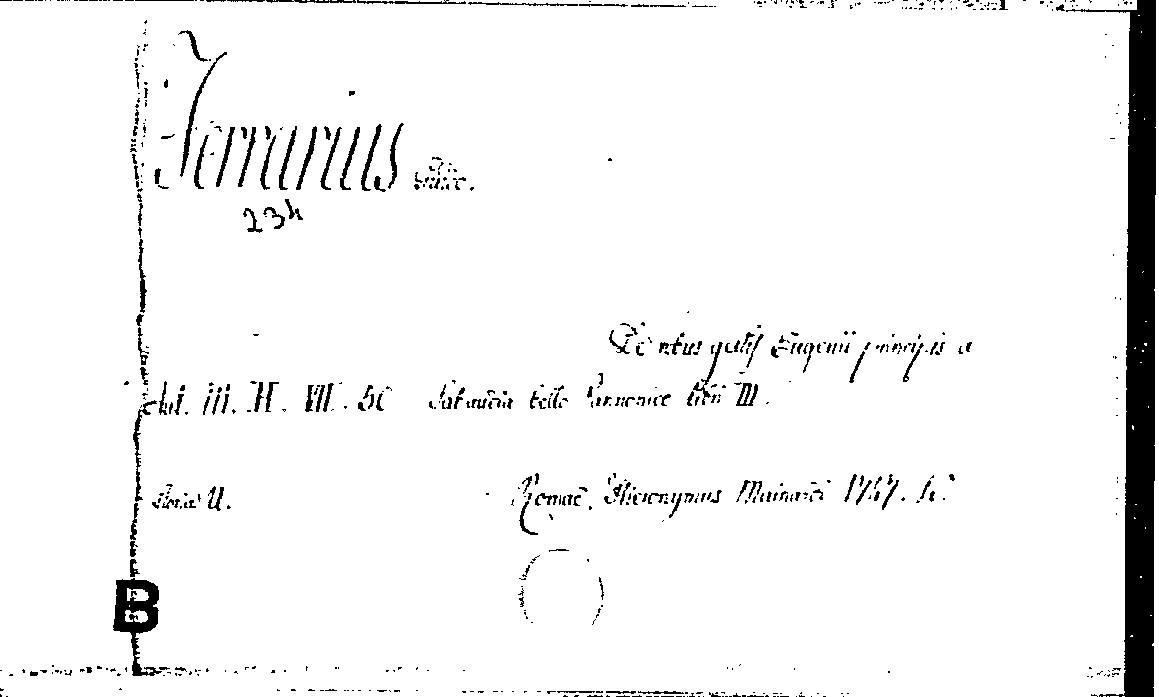 Ferrarius
234
De rebus gestis Eugenii principis a
iii. H. VII. 50 Sabaudia bello Pannonico libri III.
U. Romae, Hieronymus Mainardi 1747. 4°
B